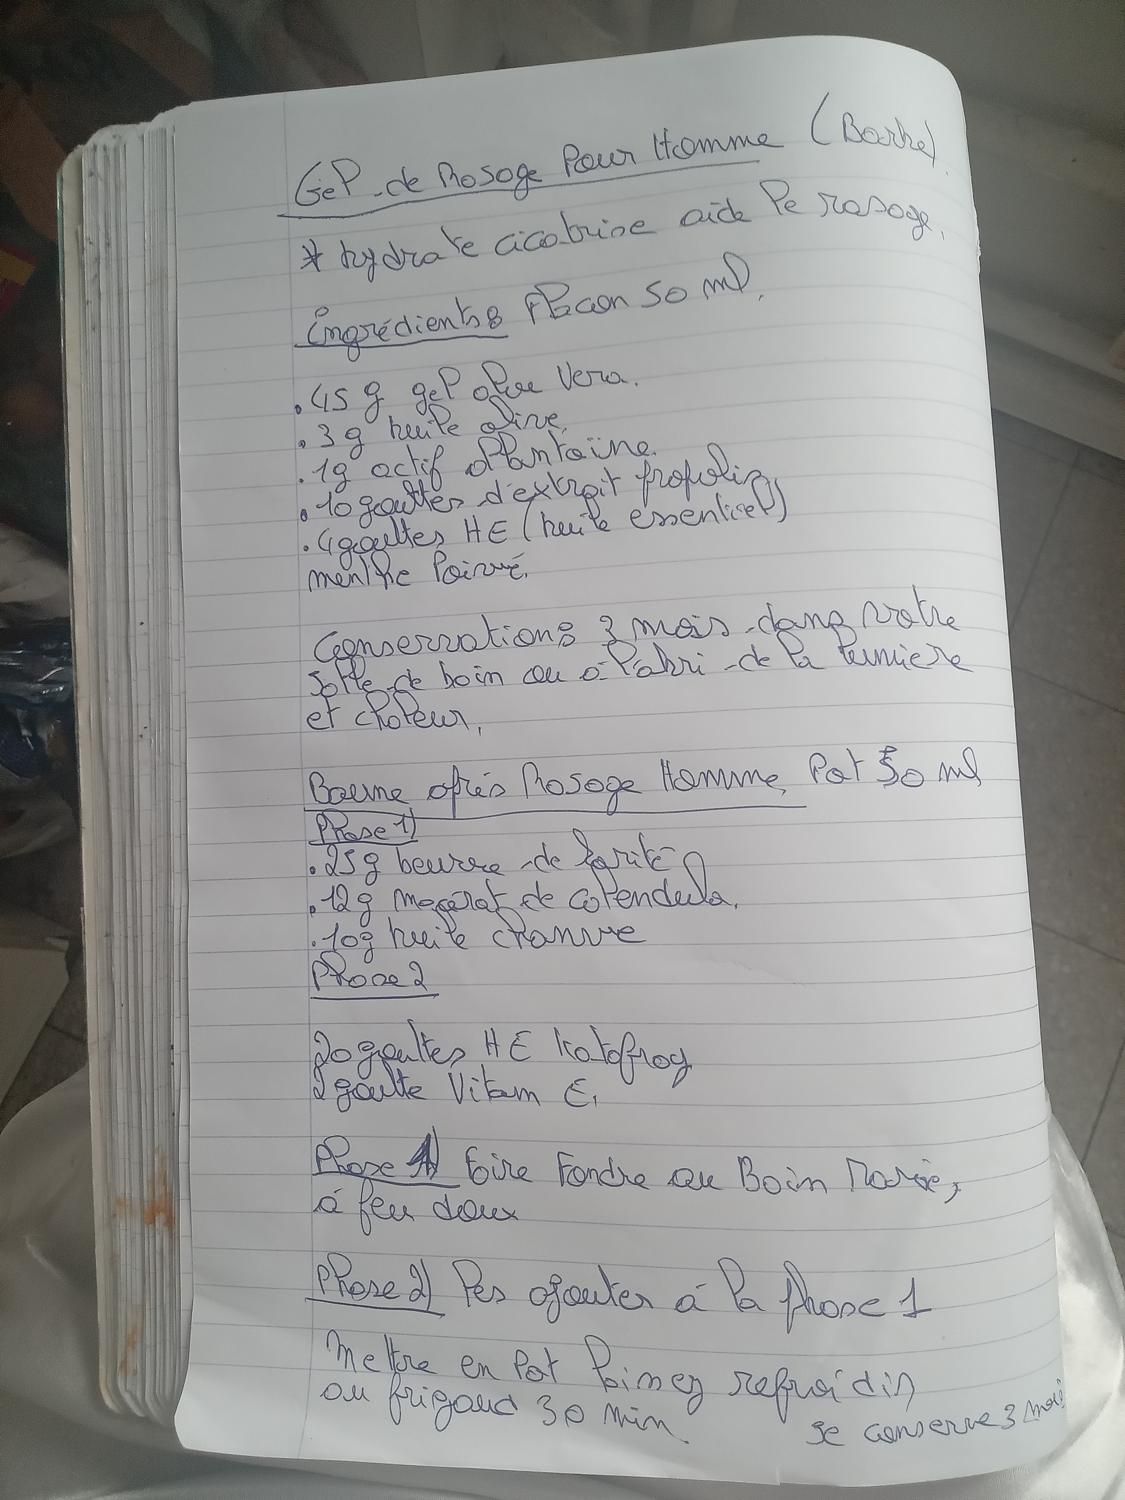 Gel de Rasage Pour Homme (Barbe)
* hydrate cicatrise aide le rasage.
Ingrédients : Flacon 50 ml.
. 45 g gel aloe Vera.
. 3 g huile olive.
. 1g actif Plantaine.
. 10 gouttes d'extrait propolis
. 4 gouttes HE (huile essentiel)
menthe Poivré.
Conservation : 3 mois dans votre
salle de bain ou à l'abri de la lumiere
et chaleur,
Baume après Rasage Homme, Pot 50 ml
Phase 1)
. 25g beurre de karité
. 12g macérat de calendula.
. 10g huile chanvre
Phase 2
20 gouttes HE katafray
2 goutte Vitam E,
Phase 1) faire Fondre au Bain Marie,
à feu doux
Phase 2) les ajouter à la phase 1
Mettre en Pot laissez refroidir
au frigaud 30 min.
se conserve 3 mois